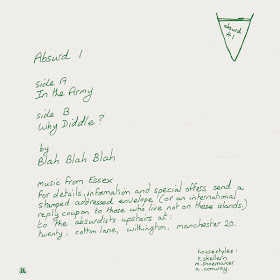 absurd
# 1
Absurd 1
side A
In the Army
side B
Why Diddle?
by
Blah Blah Blah
music from Essex.
For details, information and special offers send a
stamped addressed envelope (or an international
reply coupon to those who live not on these islands)
to the absurdists upstairs at:
twenty, cotton lane, withington, manchester 20.
housestyles:
t. skellern
m. shoemaker
a. conway.